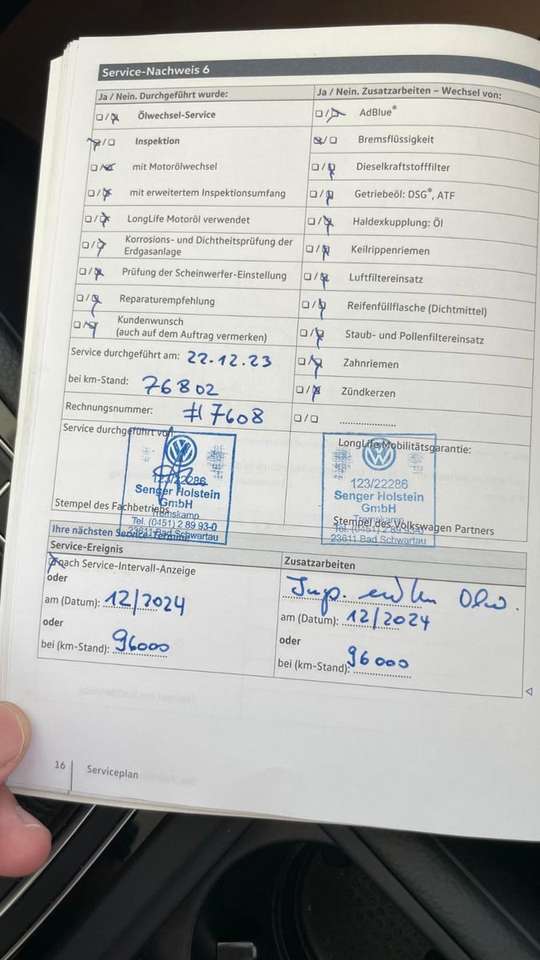 Service-Nachweis 6
Ja / Nein. Durchgeführt wurde:
Ja / Nein. Zusatzarbeiten – Wechsel von:
Ölwechsel-Service
AdBlue®
Inspektion
Bremsflüssigkeit
mit Motorölwechsel
Dieselkraftstofffilter
mit erweitertem Inspektionsumfang
Getriebeöl: DSG®, ATF
LongLife Motoröl verwendet
Haldexkupplung: Öl
Korrosions- und Dichtheitsprüfung der
Erdgasanlage
Keilrippenriemen
Prüfung der Scheinwerfer-Einstellung
Luftfiltereinsatz
Reparaturempfehlung
Reifenfüllflasche (Dichtmittel)
Kundenwunsch
(auch auf dem Auftrag vermerken)
Staub- und Pollenfiltereinsatz
Service durchgeführt am: 22.12.23
Zahnriemen
bei km-Stand: 76802
Zündkerzen
Rechnungsnummer: #17608
Service durchgeführt von
LongLife Mobilitätsgarantie:
123/22286
Senger Holstein
GmbH
Stempel des Fachbetriebs
Tel. (0451) 2 89 93-0
23611 Bad Schwartau
123/22286
Senger Holstein
GmbH
Stempel des Volkswagen Partners
Tel. (0451) 2 89 93-0
23611 Bad Schwartau
Ihre nächsten Service-Termine
Service-Ereignis
Zusatzarbeiten
nach Service-Intervall-Anzeige
oder
am (Datum): 12/2024
am (Datum): 12/2024
oder
oder
bei (km-Stand): 96000
bei (km-Stand): 96000
16
Serviceplan